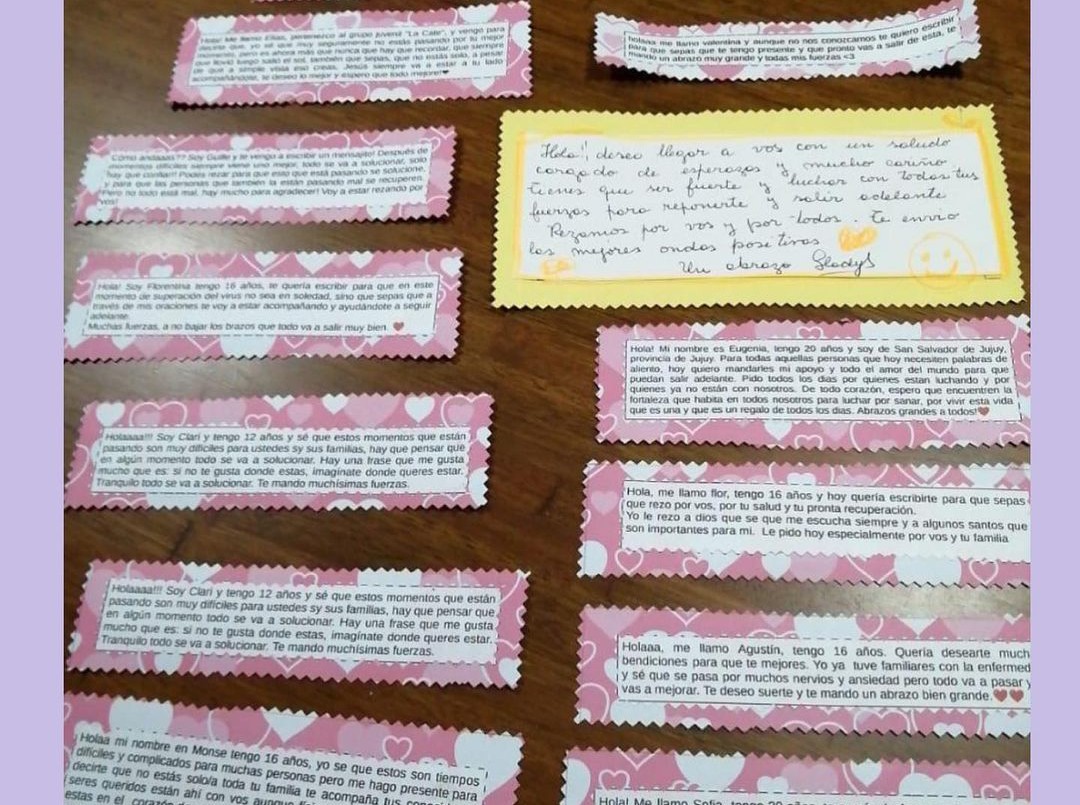 Hola! Me llamo Elias, pertenezco al grupo juvenil "La Cate", y vengo para
decirte que, yo sé que muy seguramente no estás pasando por tu mejor
momento, pero es ahora más que nunca que hay que recordar, que siempre
que llovió luego salió el sol, también que sepas, que no estás solo, a pesar
de que a simple vista eso creas, Jesús siempre va a estar a tu lado
acompañándote, te deseo lo mejor y espero que todo mejore!❤
holaaa me llamo valentina y aunque no nos conozcamos te quiero escribir
para que sepas que te tengo presente y que pronto vas a salir de esta, te
mando un abrazo muy grande y todas mis fuerzas <3
Cómo andaaas?? Soy Guille y te vengo a escribir un mensajito! Después de
momentos difíciles siempre viene uno mejor, todo se va a solucionar, solo
hay que confiar!! Podés rezar para que esto que está pasando se solucione,
y para que las personas que también la están pasando mal se recuperen.
Pero no todo está mal, hay mucho para agradecer! Voy a estar rezando por
vos!
Hola!! deseo llegar a vos con un saludo
cargado de esperazas y mucho cariño
tienes que ser fuerte y luchar con todas tus
fuerzas para reponerte y salir adelante
Rezamos por vos y por todos. Te envio
las mejores ondas positivas
Un abrazo Gladys
Hola! Soy Florentina tengo 16 años, te quería escribir para que en este
momento de superación del virus no sea en soledad, sino que sepas que a
través de mis oraciones te voy a estar acompañando y ayudándote a seguir
adelante.
Muchas fuerzas, a no bajar los brazos que todo va a salir muy bien. ❤
Hola! Mi nombre es Eugenia, tengo 20 años y soy de San Salvador de Jujuy,
provincia de Jujuy. Para todas aquellas personas que hoy necesiten palabras de
aliento, hoy quiero mandarles mi apoyo y todo el amor del mundo para que
puedan salir adelante. Pido todos los dias por quienes estan luchando y por
quienes ya no están con nosotros. De todo corazón, espero que encuentren la
fortaleza que habita en todos nosotros para luchar por sanar, por vivir esta vida
que es una y que es un regalo de todos los dias. Abrazos grandes a todos!❤
Holaaaa!!! Soy Clari y tengo 12 años y sé que estos momentos que están
pasando son muy difíciles para ustedes sy sus familias, hay que pensar que
en algún momento todo se va a solucionar. Hay una frase que me gusta
mucho que es: si no te gusta donde estas, imagínate donde queres estar.
Tranquilo todo se va a solucionar. Te mando muchísimas fuerzas.
Hola, me llamo flor, tengo 16 años y hoy quería escribirte para que sepas
que rezo por vos, por tu salud y tu pronta recuperación.
Yo le rezo a dios que se que me escucha siempre y a algunos santos que
son importantes para mi. Le pido hoy especialmente por vos y tu familia
Holaaaa!!! Soy Clari y tengo 12 años y sé que estos momentos que están
pasando son muy difíciles para ustedes sy sus familias, hay que pensar que
en algún momento todo se va a solucionar. Hay una frase que me gusta
mucho que es: si no te gusta donde estas, imagínate donde queres estar.
Tranquilo todo se va a solucionar. Te mando muchísimas fuerzas.
Holaaa, me llamo Agustín, tengo 16 años. Quería desearte much
bendiciones para que te mejores. Yo ya tuve familiares con la enfermed
y sé que se pasa por muchos nervios y ansiedad pero todo va a pasar y
vas a mejorar. Te deseo suerte y te mando un abrazo bien grande.❤❤
Holaa mi nombre en Monse tengo 16 años, yo se que estos son tiempos
difíciles y complicados para muchas personas pero me hago presente para
decirte que no estás solo/a toda tu familia te acompaña tus
seres queridos están ahí con vos aunque
estas en el corazón
Hola! Me llamo Sofia, tengo 20 años